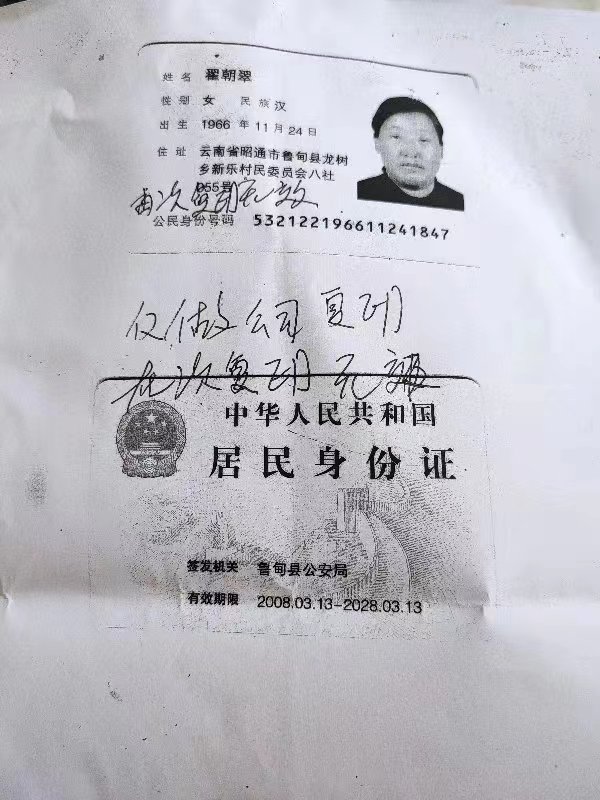 姓名 翟朝翠
性别 女 民族 汉
出生 1966 年 11 月 24 日
住址 云南省昭通市鲁甸县龙树
乡新乐村民委员会八社
055号
再次复印无效
公民身份号码 532122196611241847
仅做公司复印
在次复印无
中华人民共和国
居民身份证
签发机关 鲁甸县公安局
有效期限 2008.03.13-2028.03.13